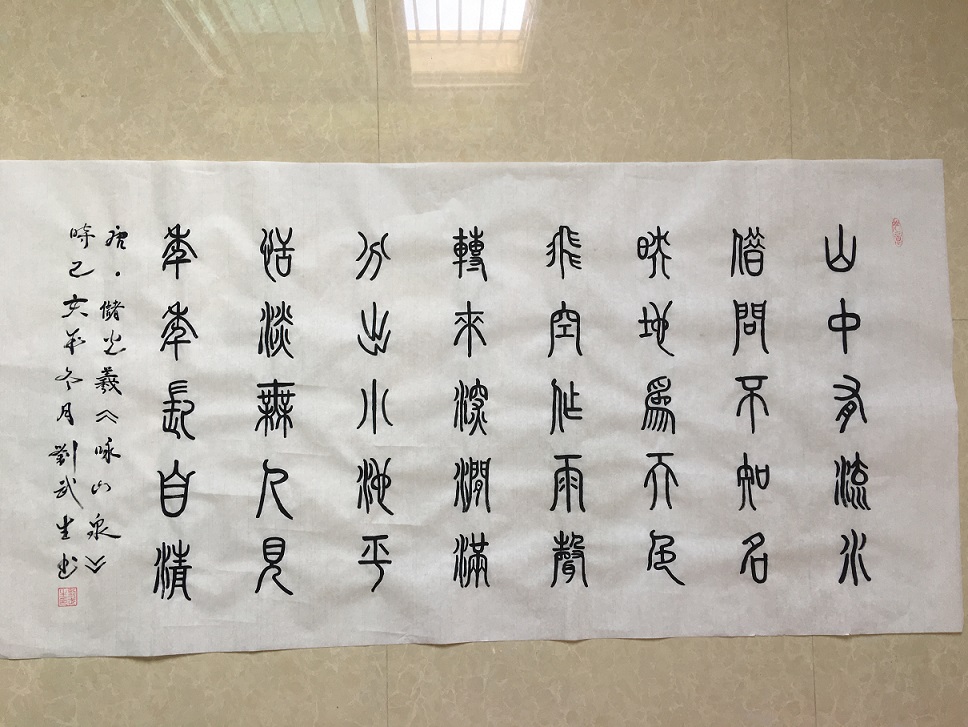 山中有流水
借問不知名
映地為天色
飛空作雨聲
轉來深澗滿
分出小池平
恬淡無人見
年年長自清
唐·儲光羲《咏山泉》
時己亥年冬月劉武生书